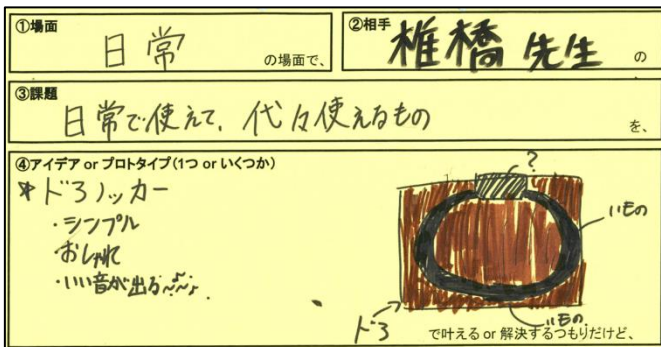 ①場面
日常 の場面で、
②相手
椎橋先生 の
③課題
日常で使えて、代々使えるもの を、
④アイデア or プロトタイプ(1つ or いくつか)
*ドアノッカー
・シンプル
・おしゃれ
・いい音が出る〜〜♪
?
いもの
ドア
いもの
で叶える or 解決するつもりだけど、